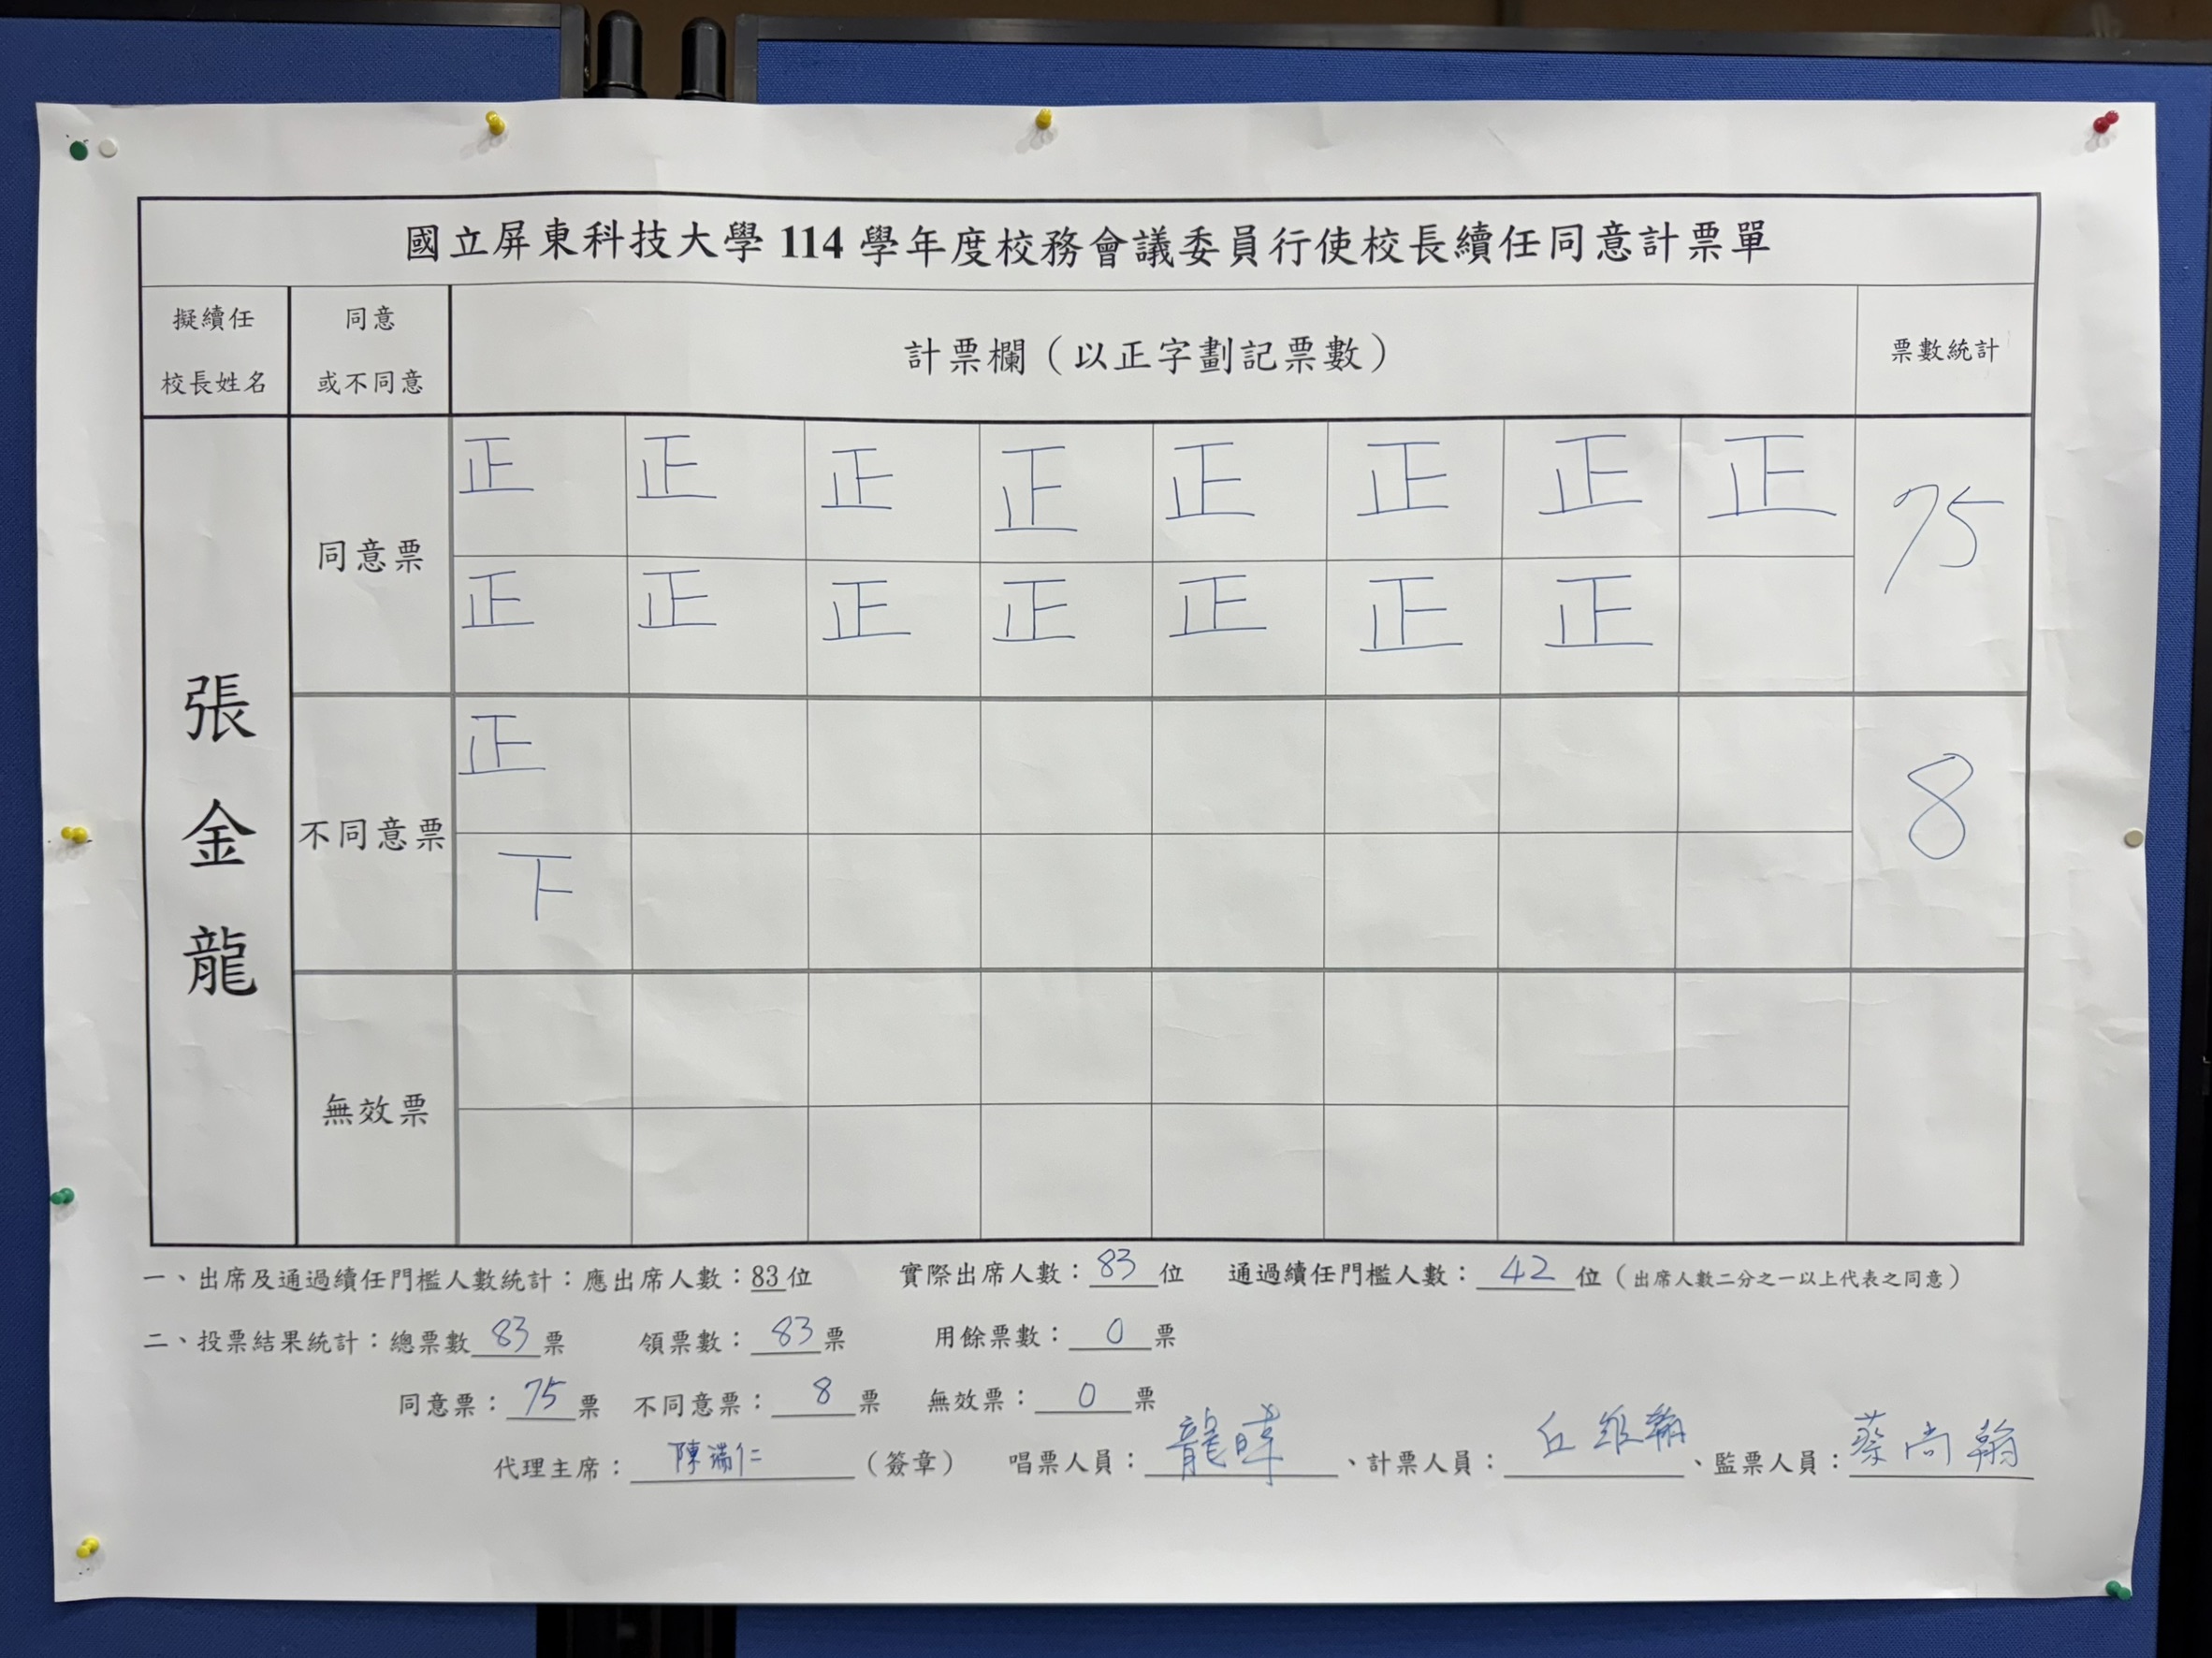 國立屏東科技大學 114 學年度校務會議委員行使校長續任同意計票單
擬續任
校長姓名
同意
或不同意
計票欄（以正字劃記票數）
票數統計
張金龍
同意票
正 正 正 正 正 正 正 正
正 正 正 正 正 正 正
75
不同意票
正
下
8
無效票
一、出席及通過續任門檻人數統計：應出席人數：83位 實際出席人數：83位 通過續任門檻人數：42位（出席人數二分之一以上代表之同意）
二、投票結果統計：總票數83票 領票數：83票 用餘票數：0票
同意票：75票 不同意票：8票 無效票：0票
代理主席：陳瑞仁（簽章） 唱票人員：龍暐、計票人員：丘維翰、監票人員：蔡尚翰